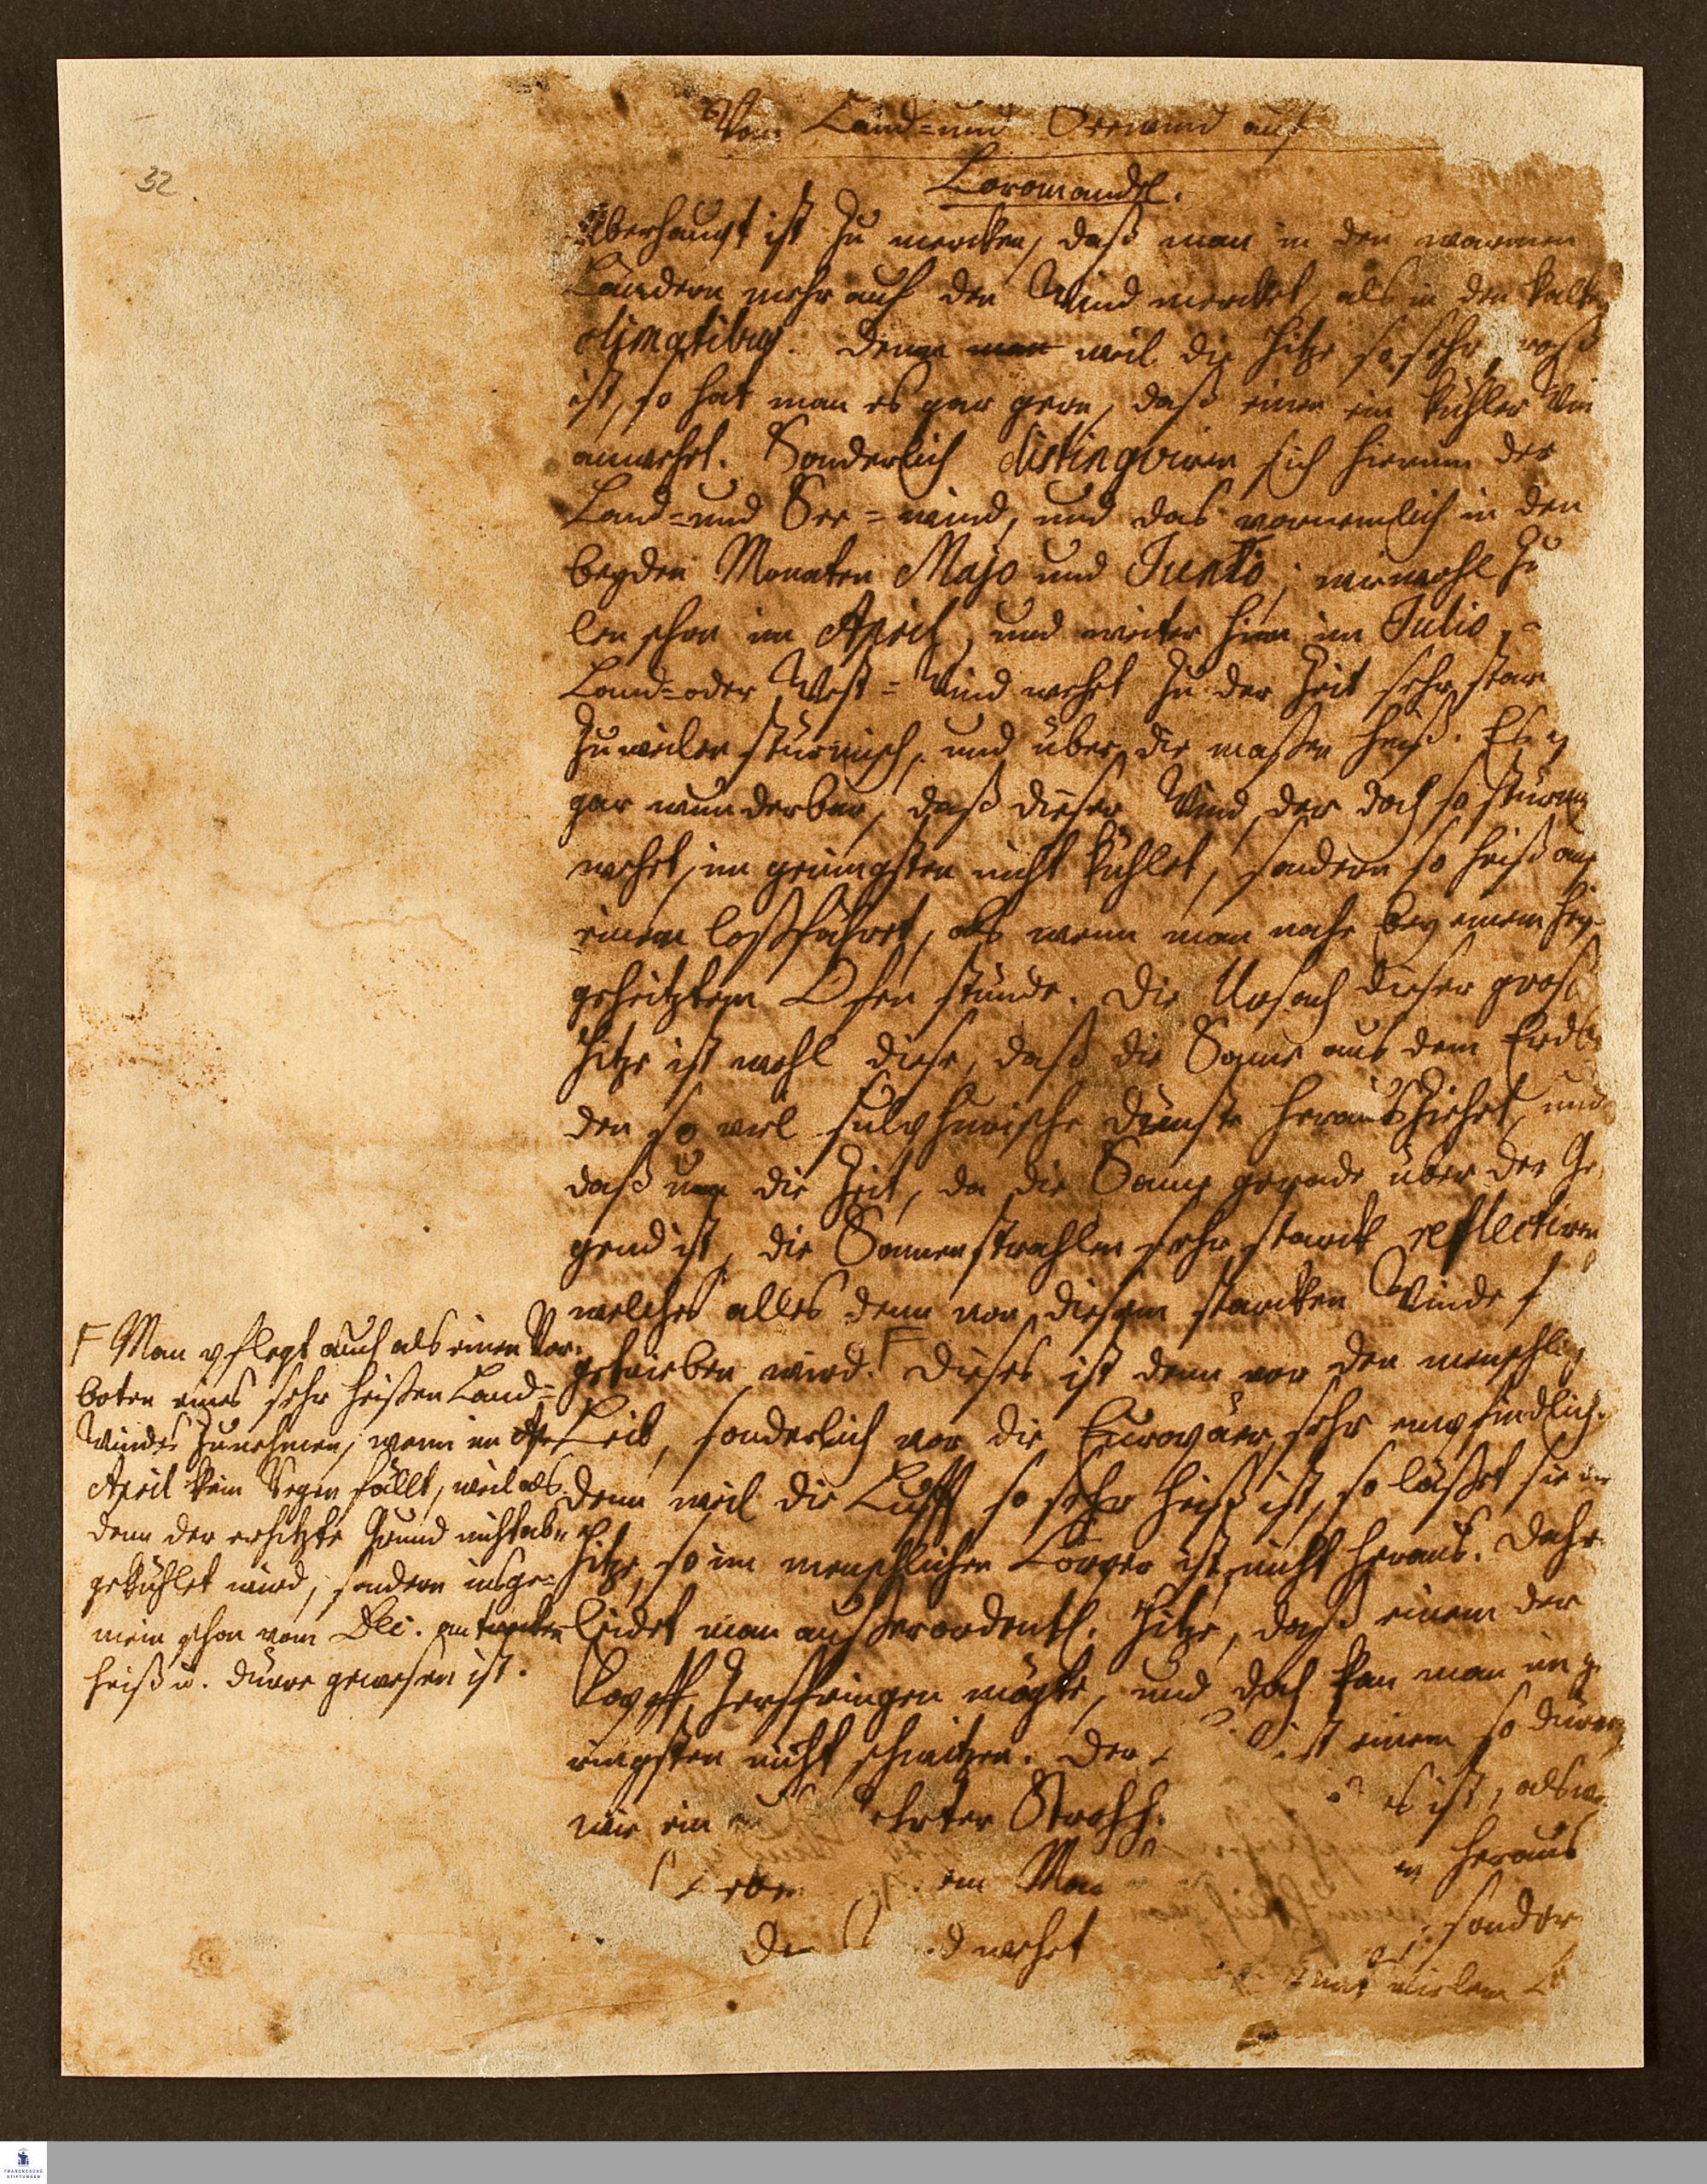 32
Vom Land= und Seewind auf
Coromandel.
Überhaupt ist zu mercken, daß man in den warmen
Ländern mehr auf den Wind mercket, als in den kalten
climatibus. Denn man weil die Hitze so sehr groß
ist, so hat man es gar gern, daß einen ein kühler Win
anwehet. Sonderlich distingviren sich hierinn der
Land= und See=wind, und das vornemlich in den
beyden Monaten Majo und Junio; wiewohl zu
len schon im April, und weiter hinn im Julio.
Land= oder West=Wind wehet zu der Zeit sehr star
zuweilen stürmisch, und über die maßen heiß. Es
gar wunderbar, daß dieser Wind, der doch so stürmi
wehet, im geringsten nicht kühlet, sondern so heiß auf
einen loßfähret, als wenn man nahe bey einem
geheitztem Ofen stünde. Die Ursach dieser groß
Hitze ist wohl diese, daß die Sonne aus dem Erdb
den so viel sulphurische Dünste herausziehet, und
daß um die Zeit, da die Sonne gerade über der Ge
gend ist, die Sonnenstrahlen sehr starck reflectiren
welches alles denn von diesem starcken Winde
getrieben wird. F Dieses ist denn vor den menschli
Leib, sonderlich vor die Europäer, sehr empfindlich.
Denn weil die Lufft so sehr heiß ist, so läßet sie die
Hitze, so im menschlichen Cörper ist, nicht heraus. Dahe
leidet man außerordentl. Hitze, daß einem der
Kopff zerspringen mögte, und doch kan man im ge
ringsten nicht schwitzen. Der ist einem so dürre
wie ein ehrter Strohh. es ist, als we
ein heraus
De d wehet sonder
vielem
F Man pflegt auch als einen Vor-
boten eines sehr heißen Land=
Windes zunehmen, wenn im Ap
April kein Regen fällt, weil als-
denn der erhitzte Grund nicht ab-
gekühlet wird, sondern insge-
mein schon vom Dec. an trocken
heiß u. dürre gewesen ist.
FRANCKESCHE
STIFTUNGEN